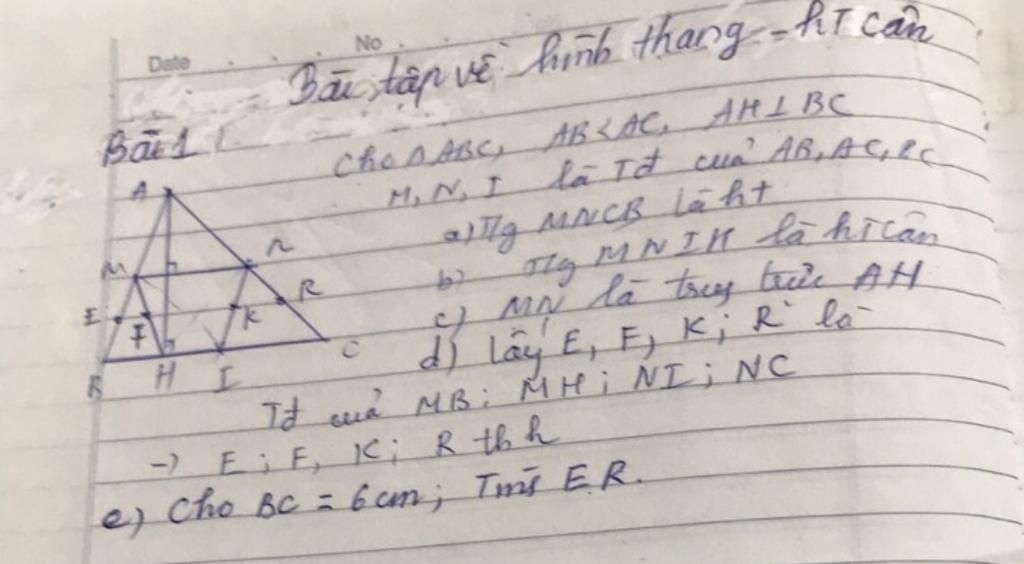 Date No
Bài tập về hình thang - hT cân
Bài 1
Cho △ABC, AB < AC, AH ⊥ BC
M, N, I là Tđ của AB, AC, BC
a) T/g MNCB là ht
b) T/g MNIH là hT cân
c) MN là trung trực AH
d) Lấy E, F, K; R là
Tđ của MB; MH; NI; NC
→ E; F, K; R th h
e) Cho BC = 6cm; Tính ER.
A
M
N
E
F
K
R
B
H
I
C